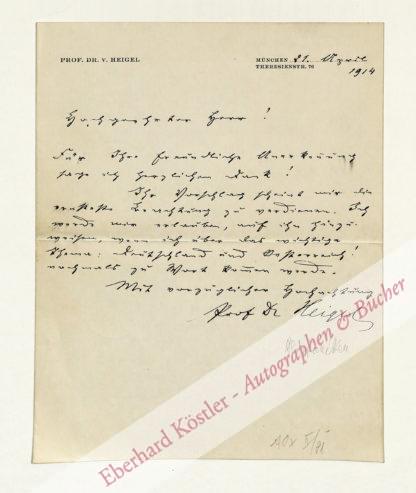 PROF. DR. V. HEIGEL
MÜNCHEN 21. April
THERESIENSTR. 76
1914
Hochgeehrter Herr!
Für Ihre freundliche Anerkennung
sage ich herzlichen Dank!
Ihr Vorschlag scheint mir die
ernsteste Beachtung zu verdienen. Ich
werde mir erlauben, auf ihn hinzu-
weisen, wenn ich über das wichtige
Thema: Deutschland und Oesterreich!
nochmals zu Wort kommen werde.
Mit vorzüglicher Hochachtung
Prof Dr Heigel
Eberhard Köstler - Autographen & Bücher